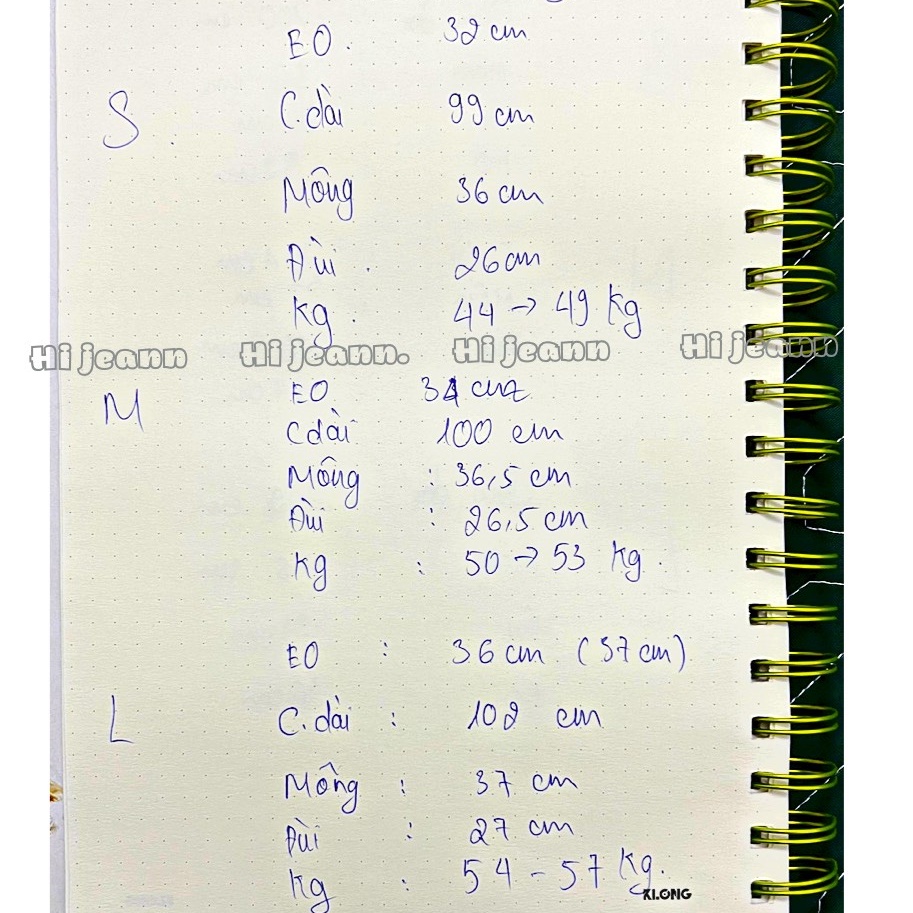 EO. 32 cm
S C.dài 99 cm
Mông 36 cm
Đùi. 26 cm
Kg. 44 → 49 kg
Hi jeann Hi jeann. Hi jeann Hi jeann
M EO 34 cm
Cdài 100 cm
Mông : 36,5 cm
Đùi : 26,5 cm
Kg : 50 → 53 kg.
EO : 36 cm (37 cm)
L C.dài : 102 cm
Mông : 37 cm
Đùi : 27 cm
Kg : 54 - 57 kg.
KLONG